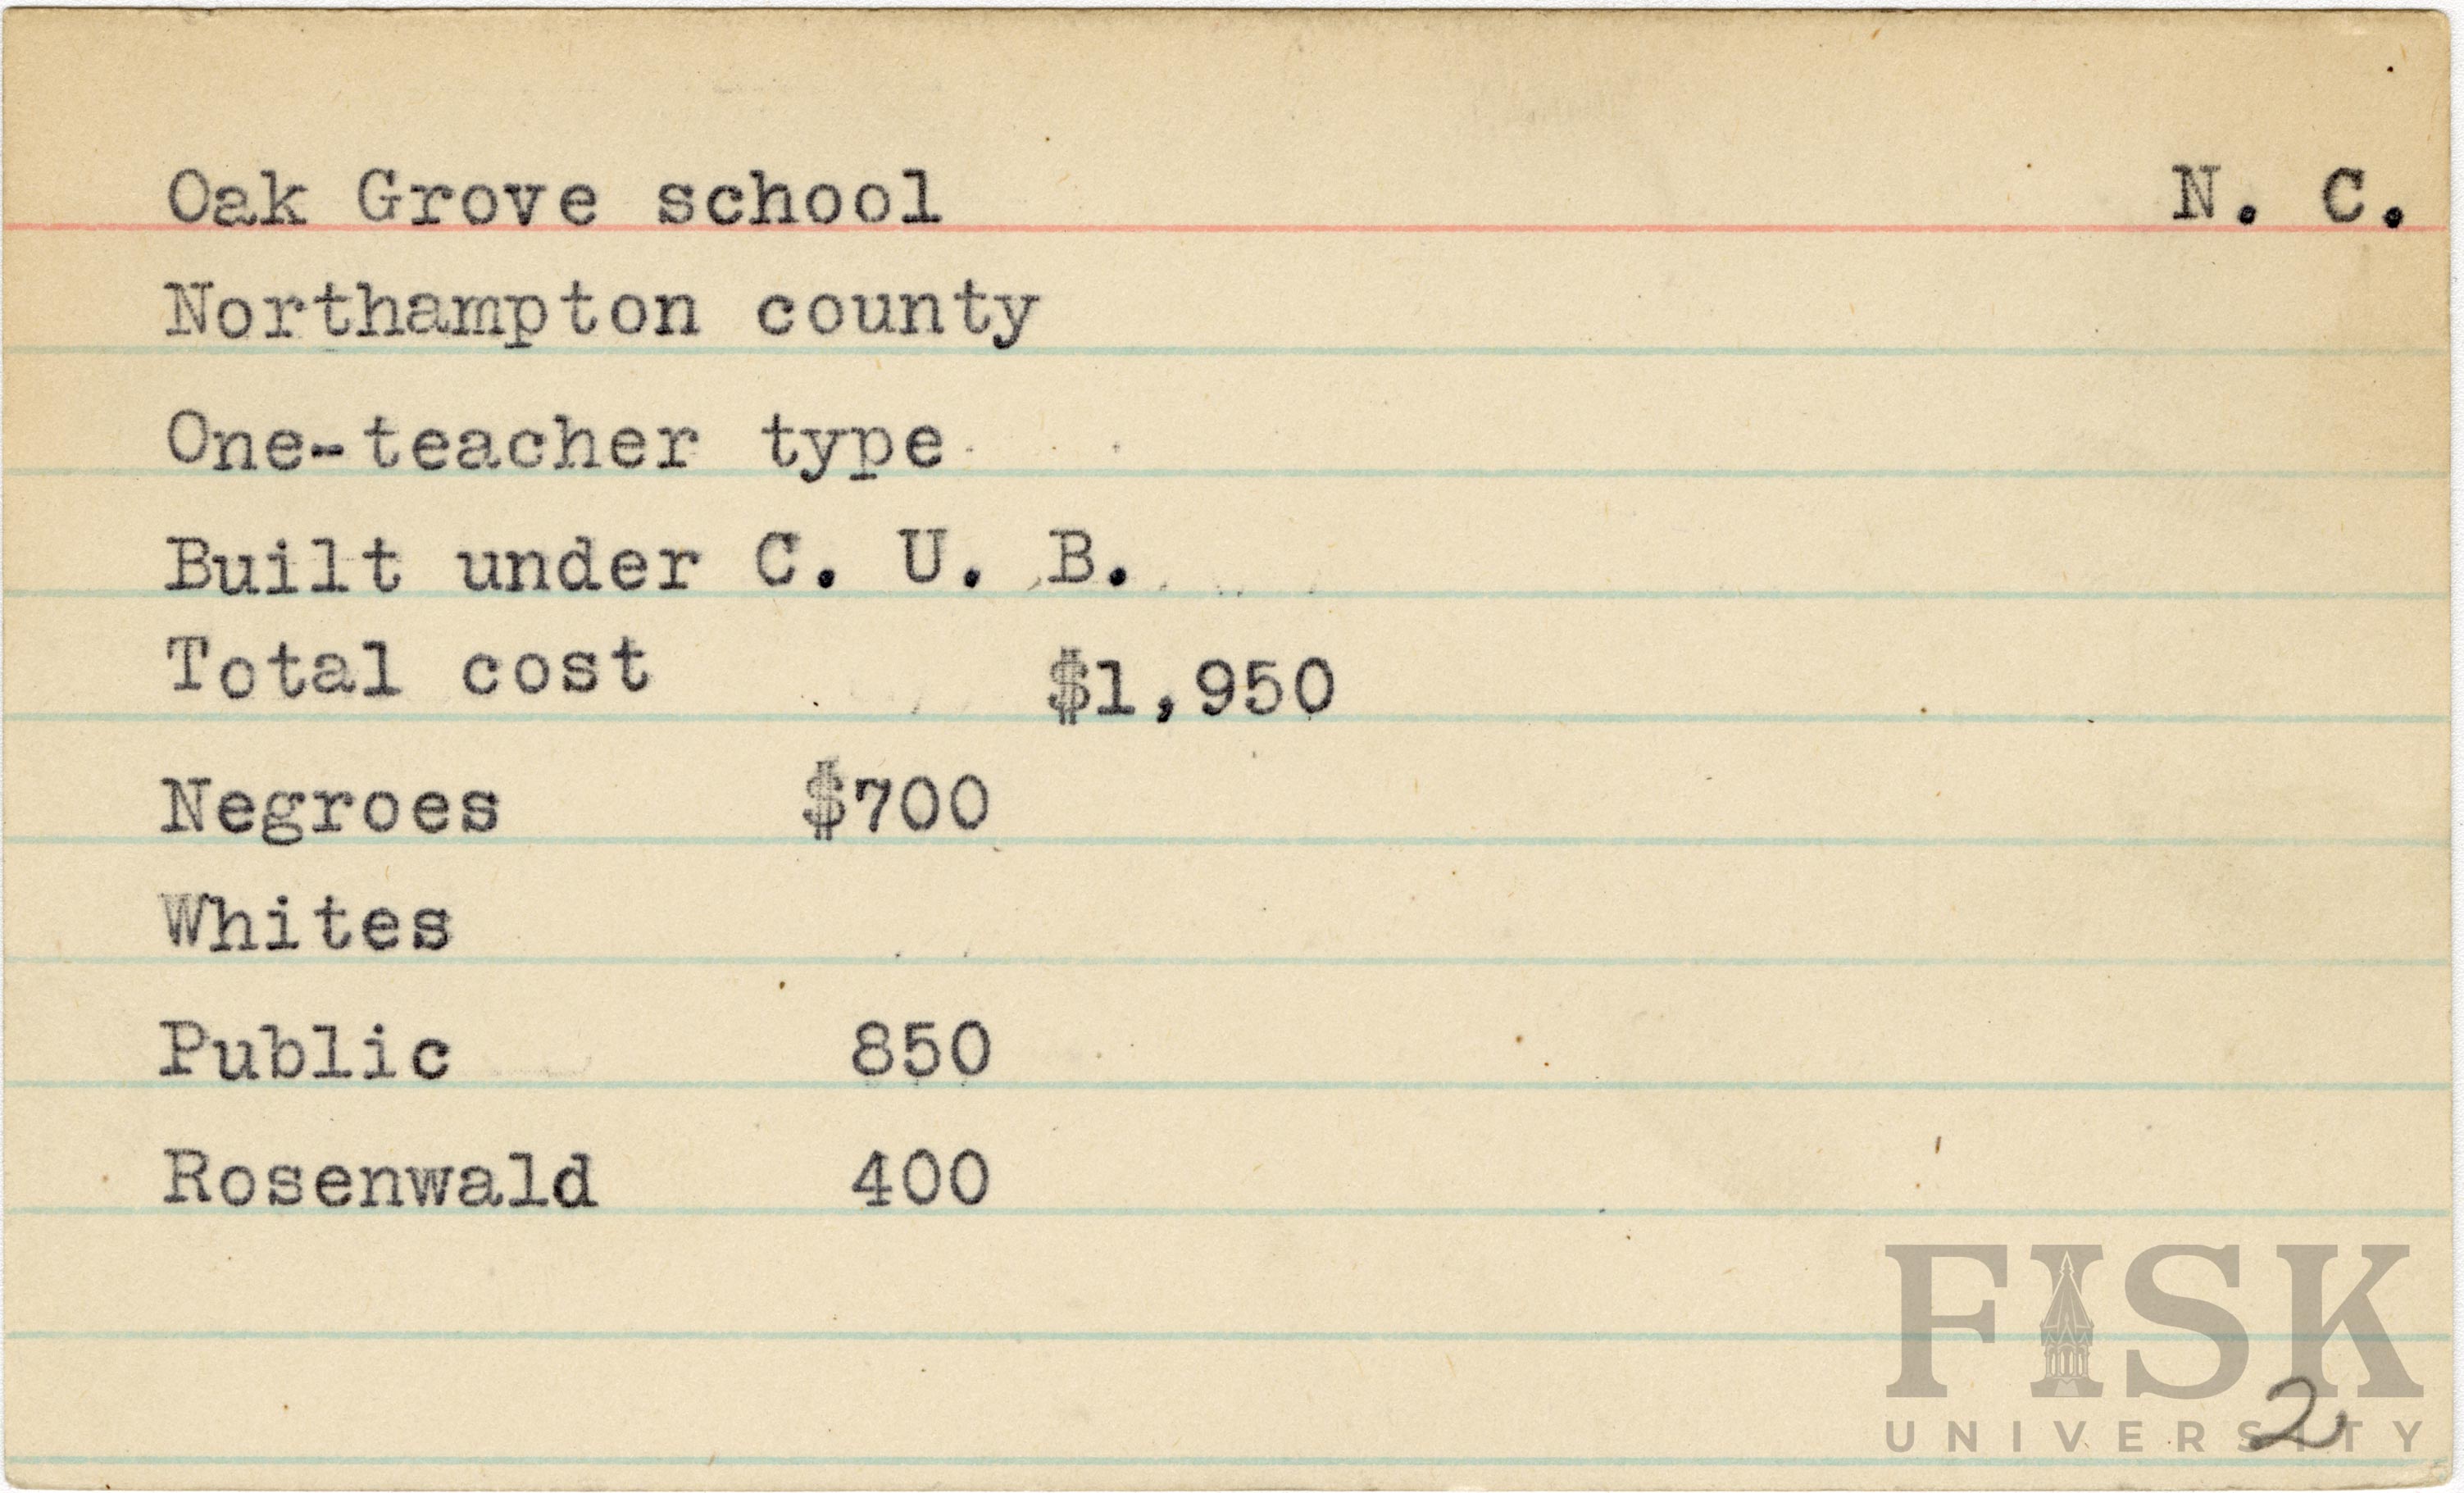 Oak Grove school N. C.
Northampton county
One-teacher type
Built under C. U. B.
Total cost $1,950
Negroes $700
Whites
Public 850
Rosenwald 400
FISK
UNIVERSITY
2